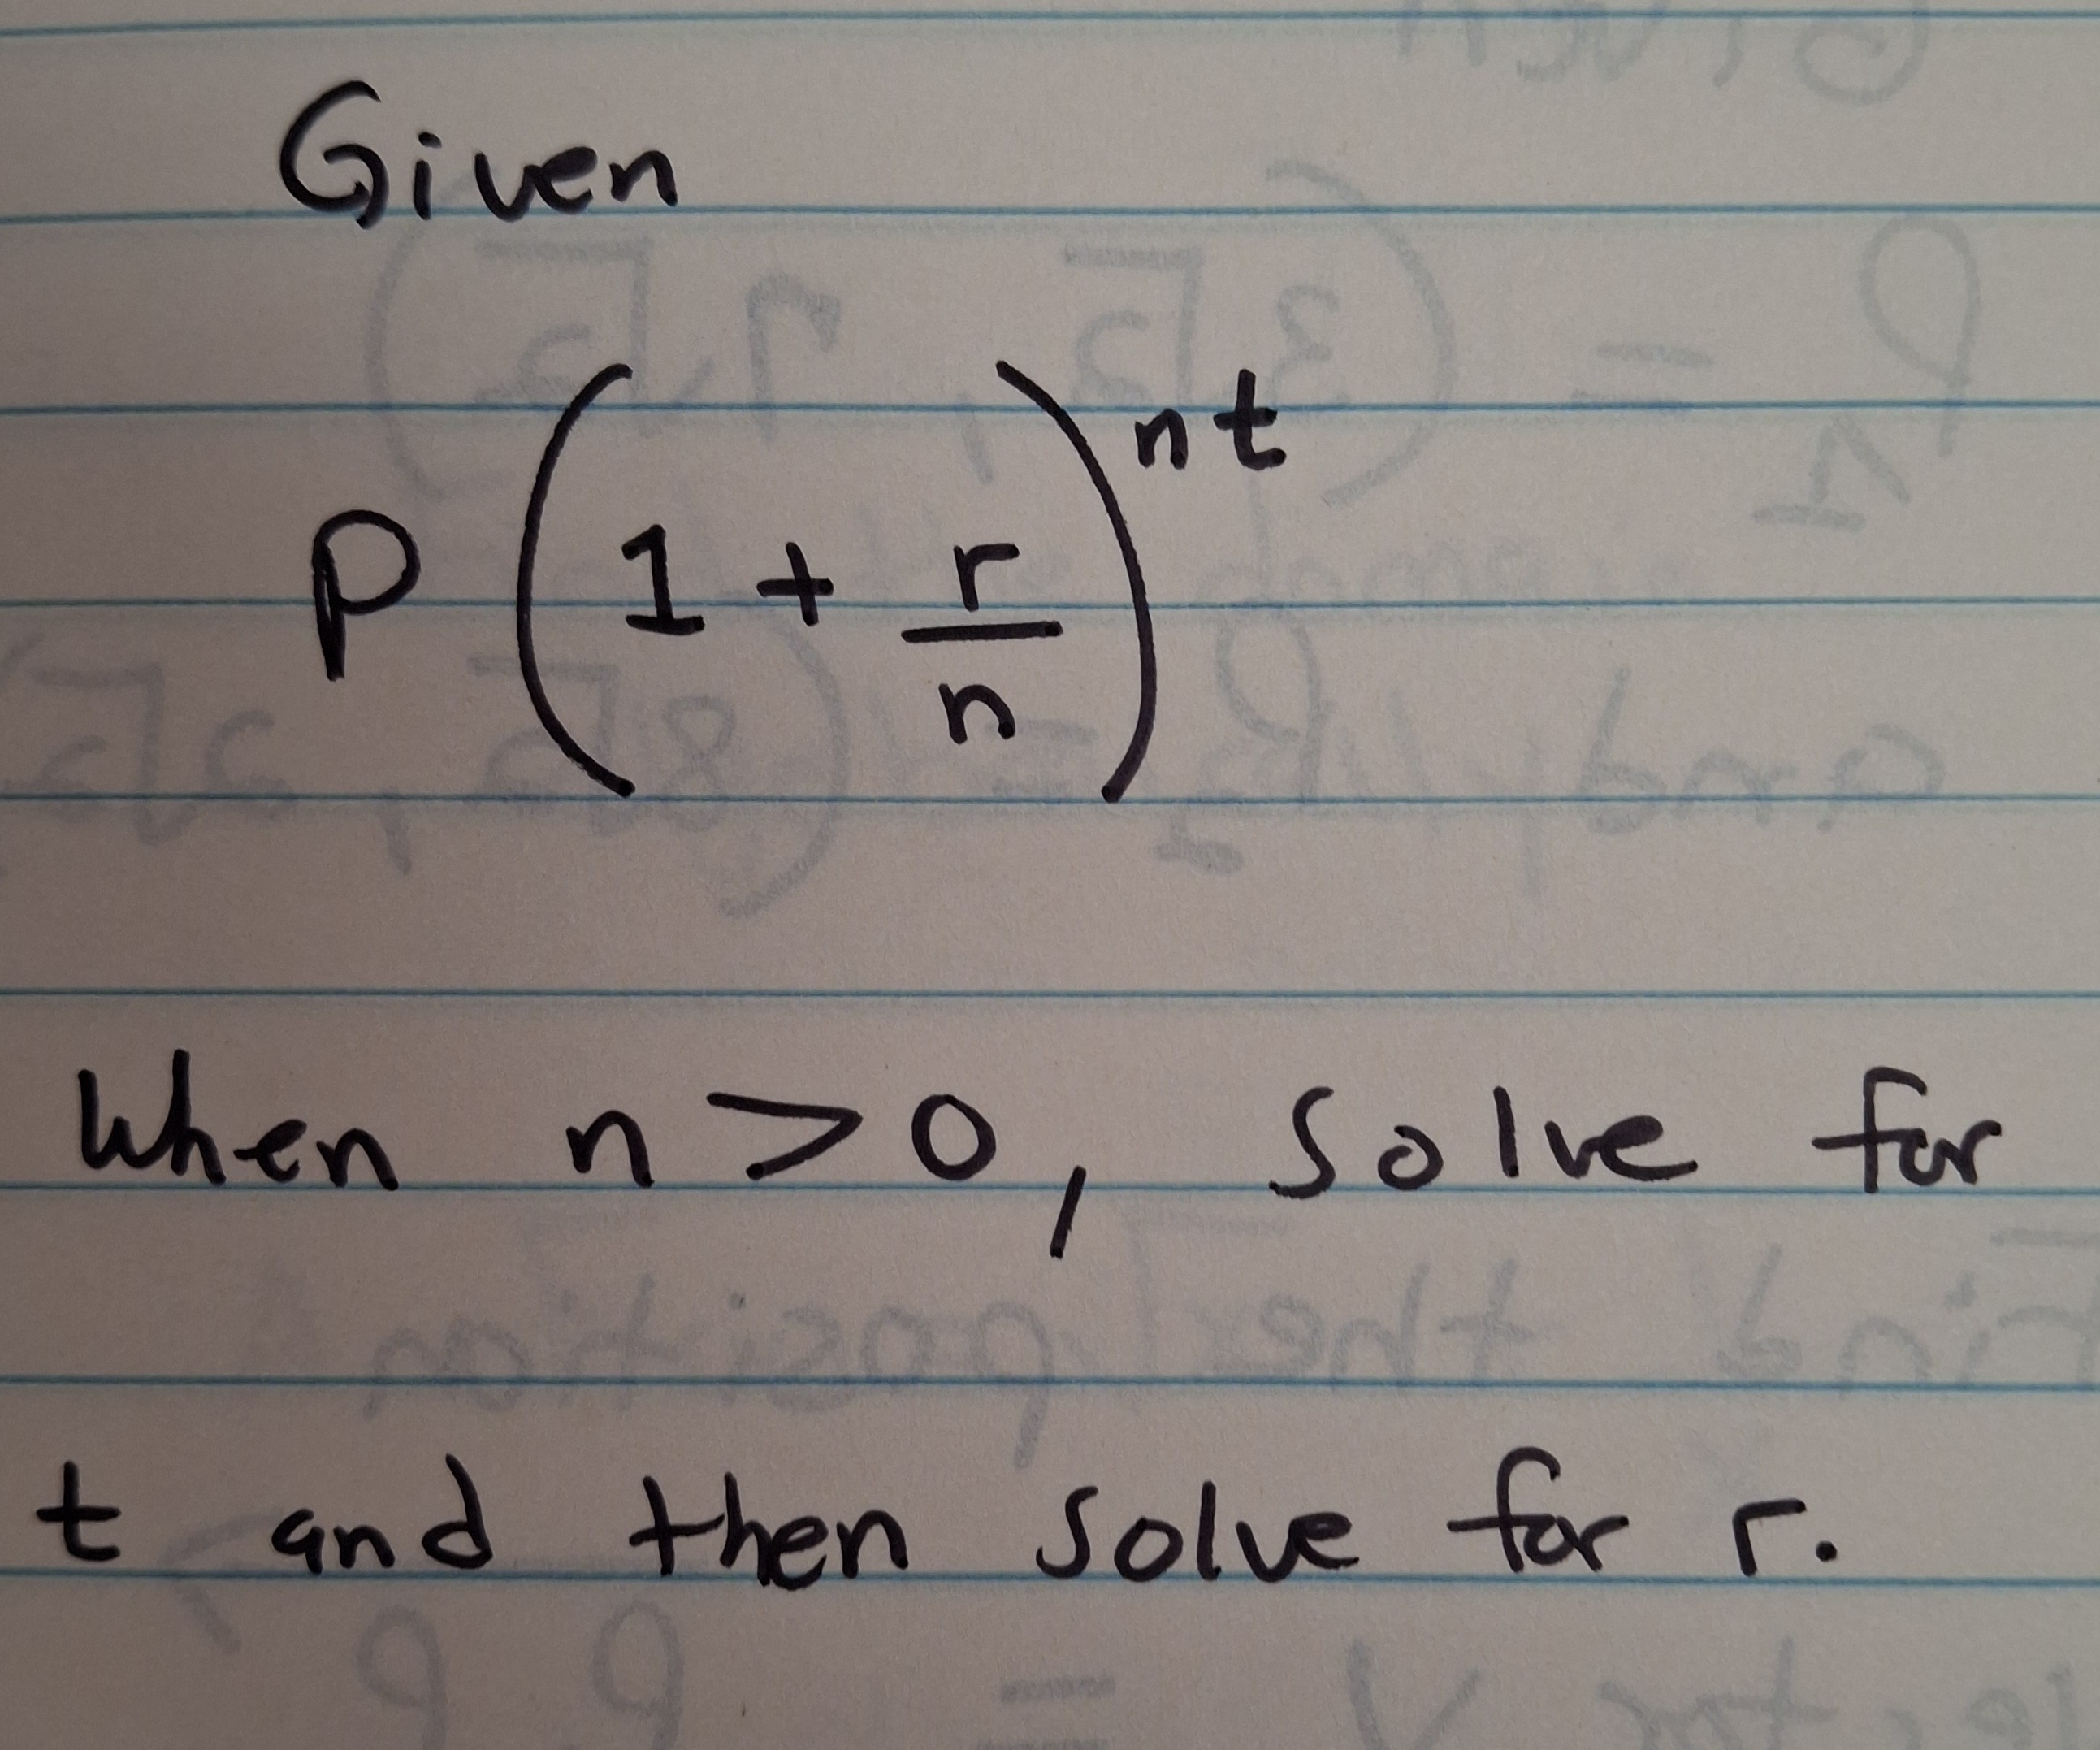 Given
P(1 + r/n)^nt
When n > 0, solve for
t and then solve for r.